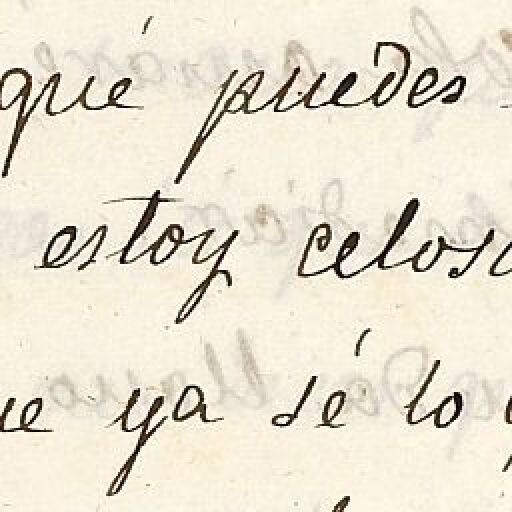 qué puedes
estoy celosa
ue ya sé lo